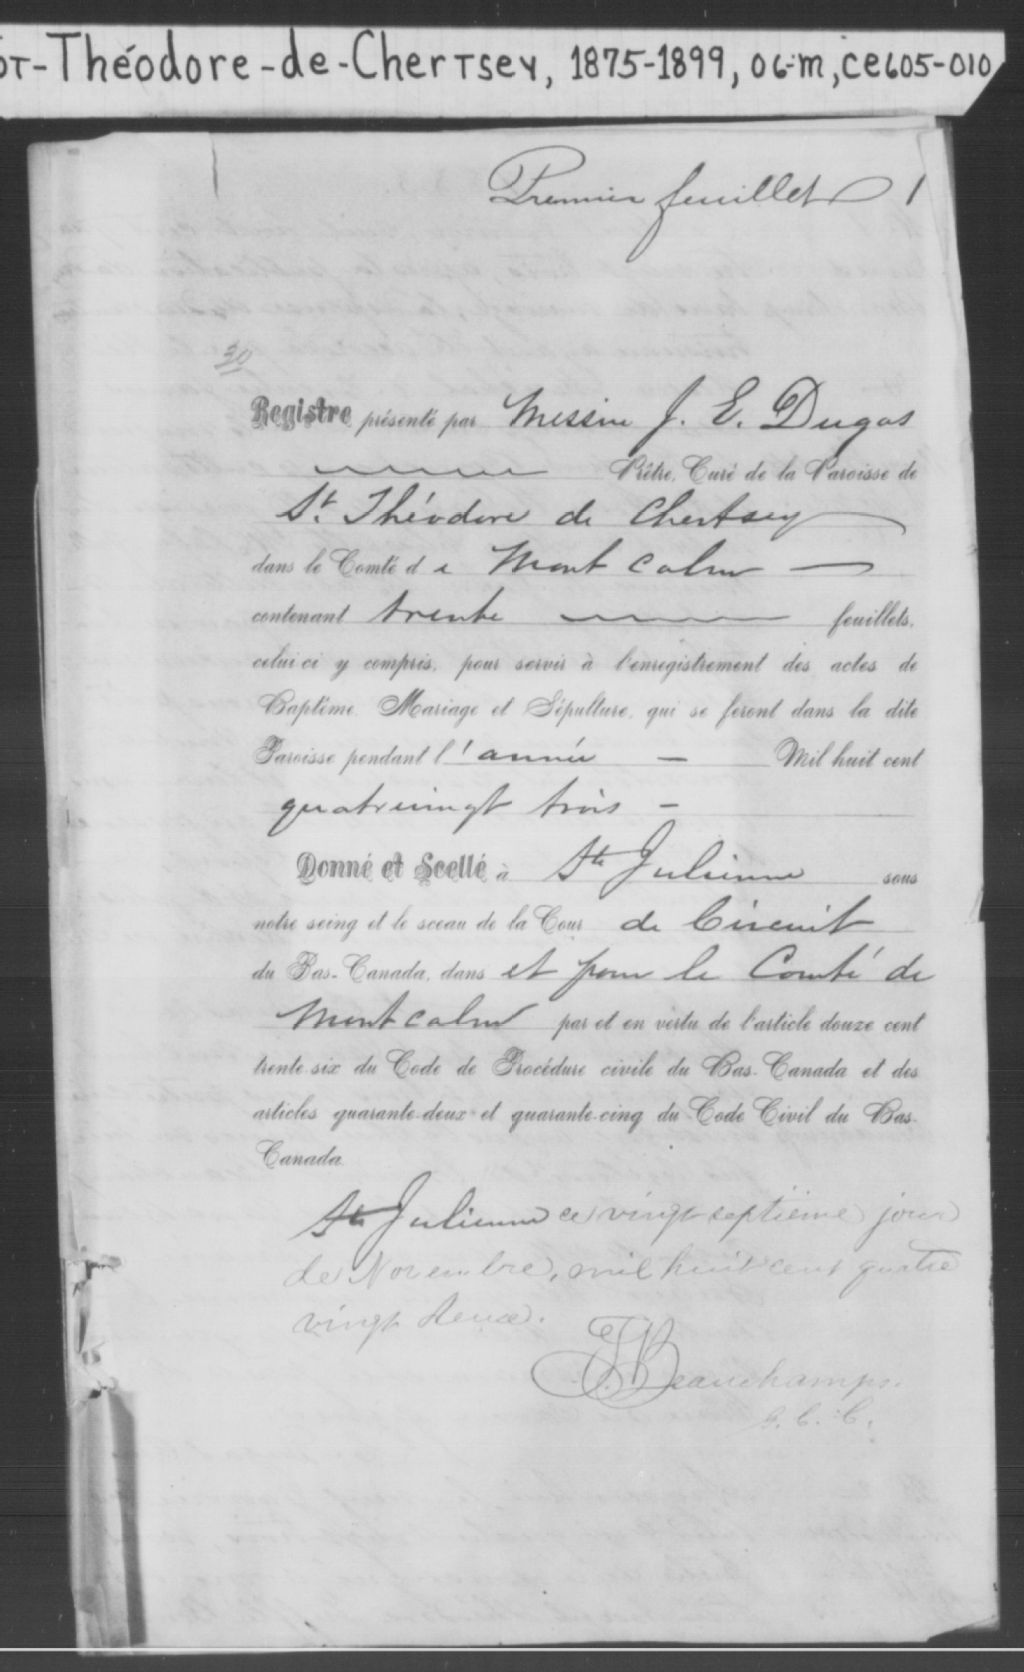 OT-Théodore-de-Chertsey, 1875-1899, 06-m, CE605-010
Premier feuillet 1
30
Registre présenté par Messire J. E. Dugas
Prêtre, Curé de la Paroisse de
St. Théodore de Chertsey
dans le Comté de Montcalm —
contenant trente feuillets,
celui ci y compris, pour servir à l'enregistrement des actes de
Baptême, Mariage et Sépulture, qui se feront dans la dite
Paroisse pendant l'année — Mil huit cent
quatrevingt trois —
Donné et Scellé à Ste Julienne sous
notre seing et le sceau de la Cour de Circuit
du Bas-Canada, dans et pour le Comté de
Montcalm par et en vertu de l'article douze cent
trente-six du Code de Procédure civile du Bas-Canada et des
articles quarante-deux et quarante-cinq du Code Civil du Bas-
Canada.
Ste Julienne ce vingt septième jour
de Novembre, mil huit cent quatre
vingt deux.
Beauchamp.
G. C. C.